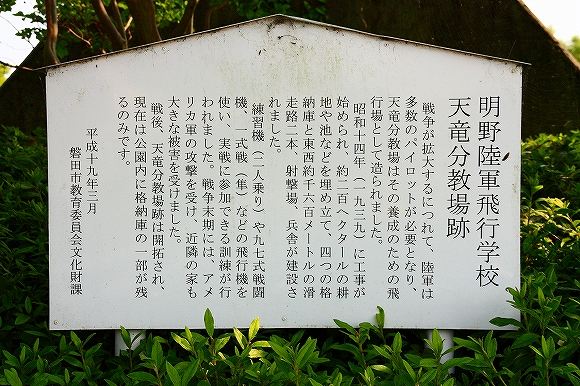 明野陸軍飛行学校
天竜分教場跡
戦争が拡大するにつれて、陸軍は
多数のパイロットが必要となり、
天竜分教場はその養成のための飛
行場として造られました。
昭和十四年(一九三九)に工事が
始められ、約二百ヘクタールの耕
地や池などを埋め立て、四つの格
納庫と東西約千六百メートルの滑
走路二本、射撃場、兵舎が建設さ
れました。
練習機(二人乗り)や九七式戦闘
機、一式戦(隼)などの飛行機を
使い、実戦に参加できる訓練が行
われました。戦争末期には、アメ
リカ軍の攻撃を受け、近隣の家も
大きな被害を受けました。
戦後、天竜分教場跡は開拓され、
現在は公園内に格納庫の一部が残
るのみです。
平成十九年三月
磐田市教育委員会文化財課